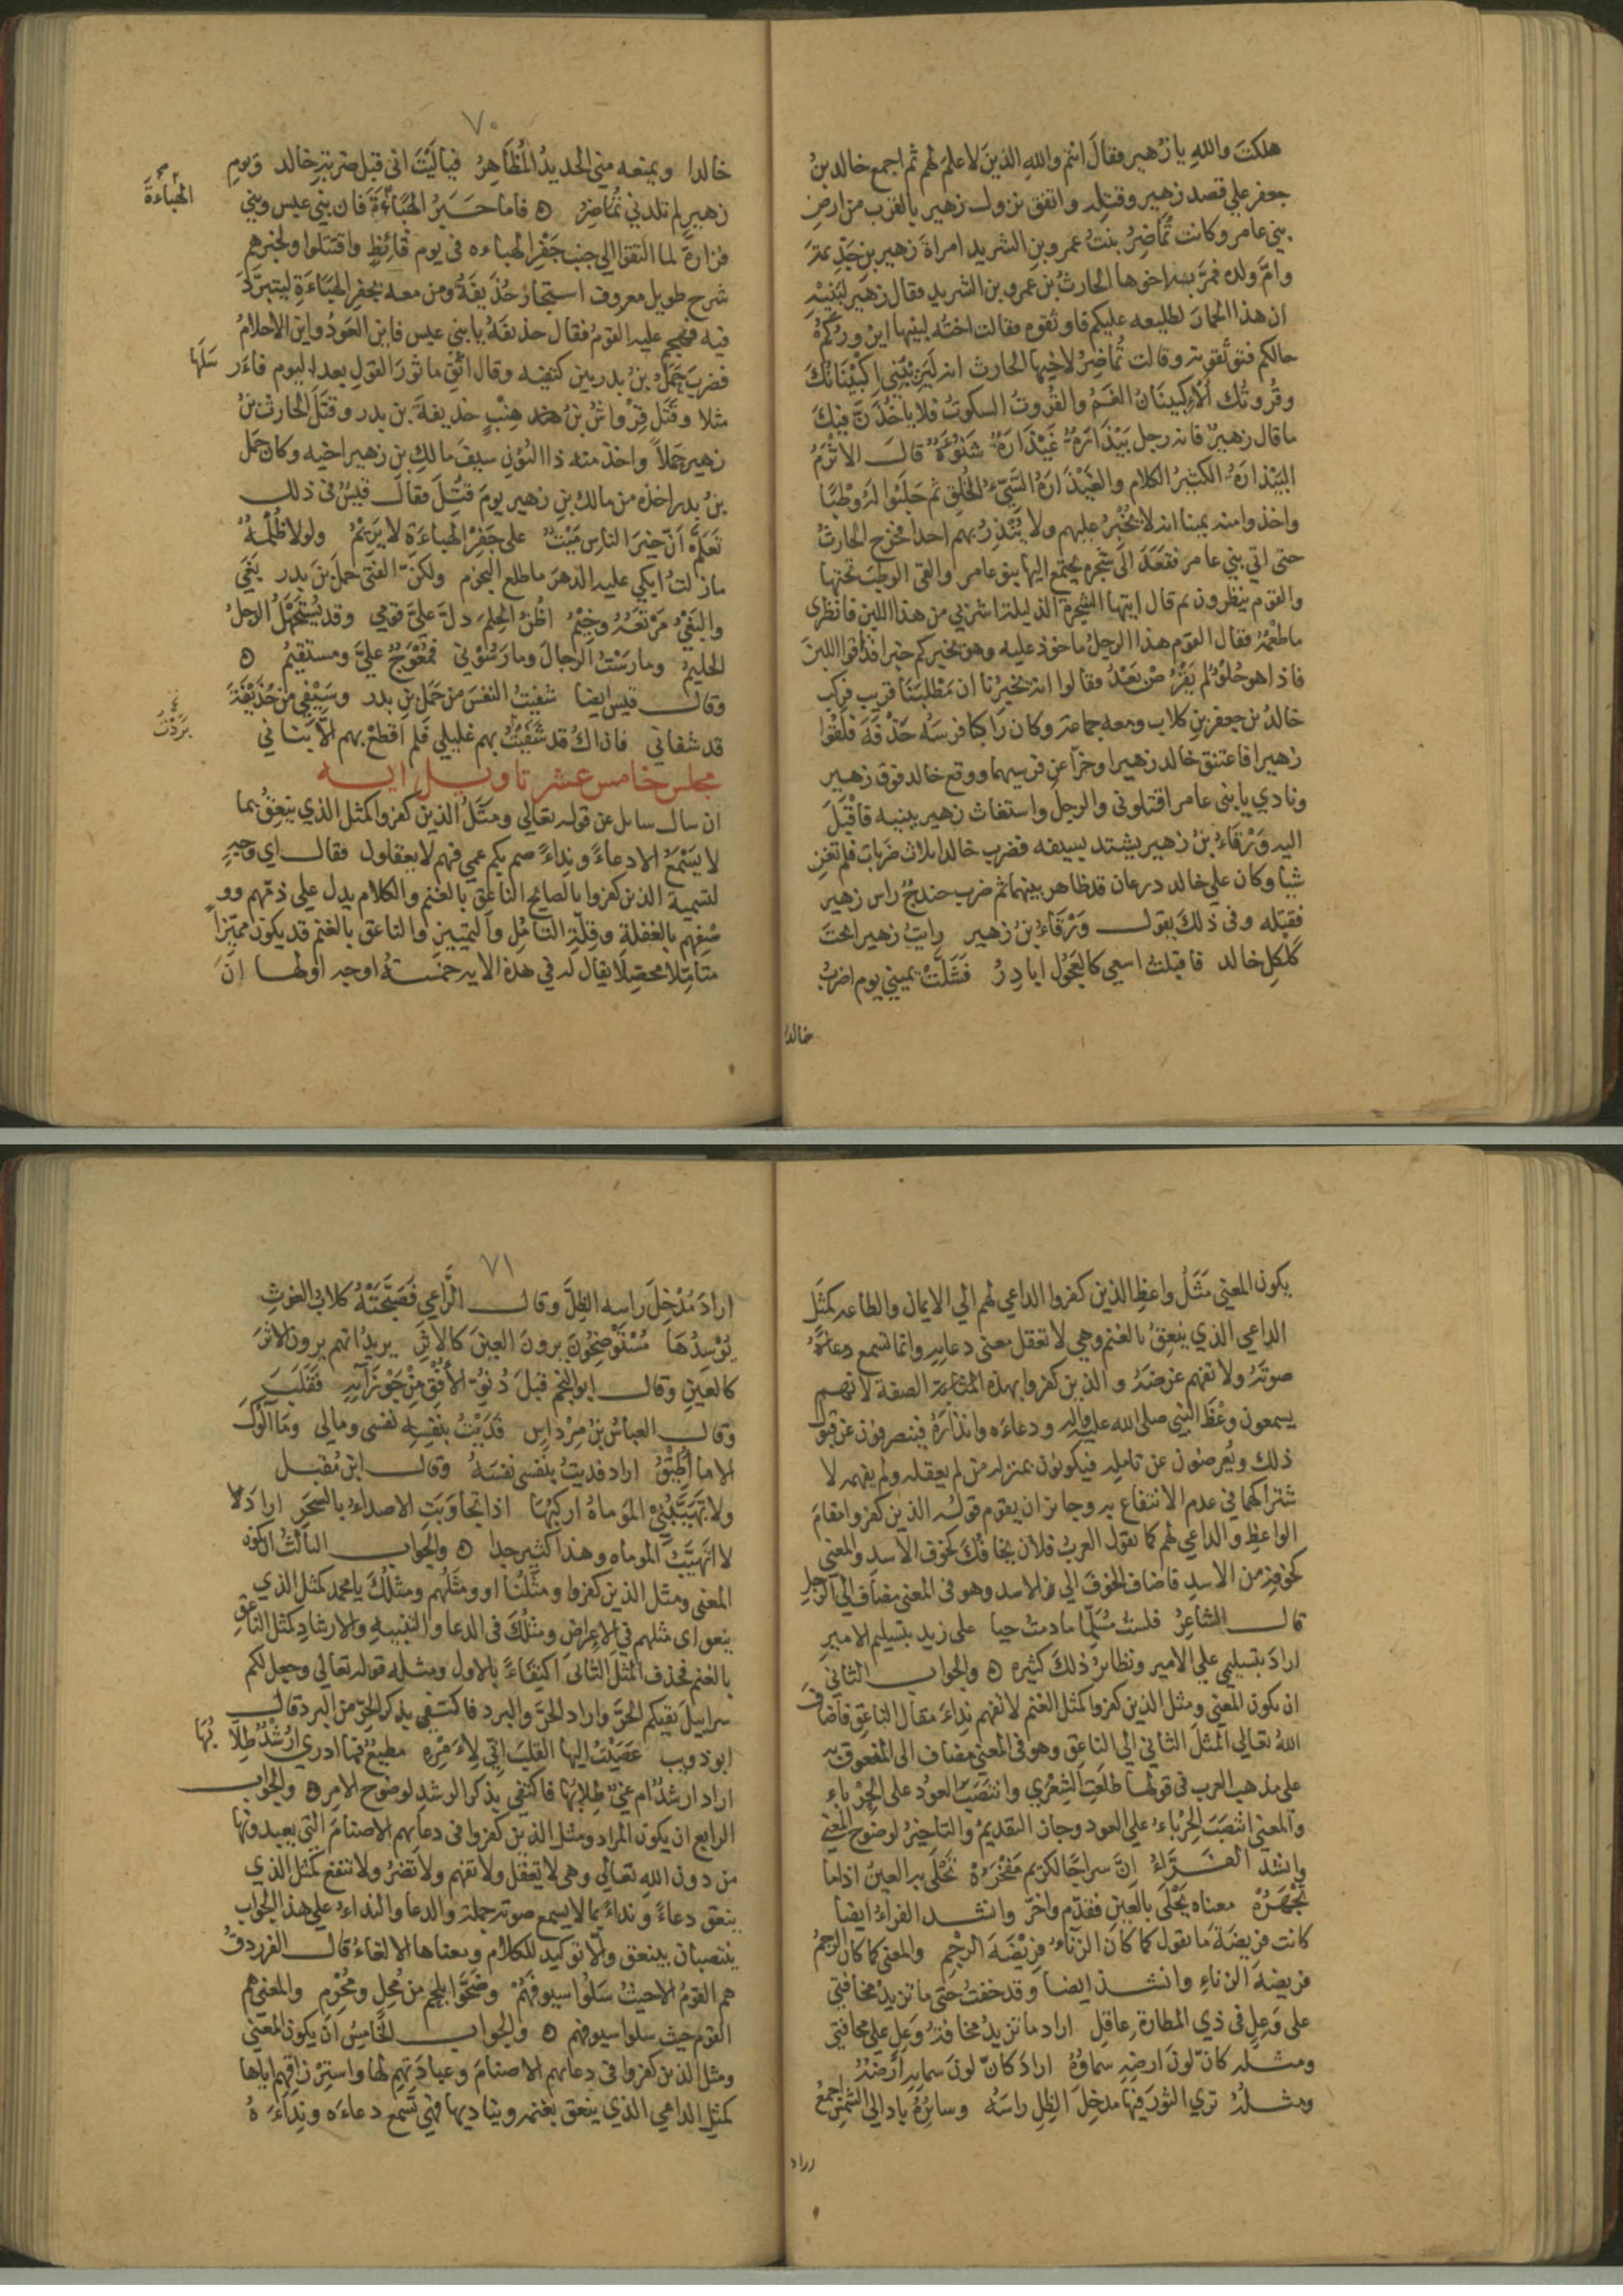 هلكتَ واللهِ يا زُهير فقالَ انتم واللهِ الذينَ لا علم لهم ثم اجمع خالد بنُ
جعفر علي قصد زهير وقتله واتفق نزول زهير بالقرب من ارضِ
بني عامر وكانت تُمَاضِرُ بنتُ عمرو بنِ الشريد امراةَ زهير بنِ جَذِيمةَ
وامَّ ولده فمرَّ بهَا اخوها الحارثُ بن عمرو بن الشريد فقال زهير لبَنِيْهِ
ان هذا الحمارَ لطليعه عليكم فاوثقوه فقالت اختُه لبنيها ايزُورُكمْ
خالكم فتوثقونه وقالت تُماضِرُ لاخيها الحارث انه ليَرِيْبُنِي اكْبِيْنَانُكَ
وقُرُوتُك الاكبينانُ الغَمُّ والقُروتُ السكوتُ فلا ياخُذَنَّ فيكَ
ما قال زهيرٌ فانه رجل بَيْذَارَةٌ غَيْذَارَةٌ شَنُوْءَةٌ قالَ الاثْرَمُ
البَيْذارَةُ الكثيرُ الكلام والغَيْذَارَةُ السَّيّءُ الخُلقِ ثم حَلَبُوا لهُ وَطْبًا
واخذوا منه يمينا انه لا يُخْبِرُ عليهم ولا يُنْذِرُ بهم احدا فخرج الحارثُ
حتى اتي بني عامر فقَعَدَ الى شجره يجتمع اليها بنو عامر والقى الوطبَ تحتها
والقوم ينظرون ثم قال ايتها الشجرة الذليلة اشربي من هذا اللبن فانظري
ما طعْمُهُ فقال القوم هذا الرجلُ ماخوذ عليه وهو يخبركم خبرا فذاقوا اللبنَ
فاذا هو حُلْوٌ لم يَقْرُصْ بَعْدُ فقالوا انه يخبرُنا ان مَطْلَبَنَا قريب فركب
خالدُ بن جعفر بنِ كلاب ومعه جماعة وكان راكبا فرسَه حَذْفَةَ فلقُوا
زهيرا فاعتنق خالد زهيرا وخرّا عن فرسيهما ووقع خالد فوق زهير
ونادي يا بني عامر اقتلوني والرجلَ واستغاث زهير ببنيه فاقْبَلَ
اليه وَرْقَاءُ بنُ زهير يشتد بسيفه فضرب خالدا ثلاث ضَرَباتٍ فلم تُغنِ
شيا وكان علي خالد درعان قد ظاهر بينهما ثم ضرب حندجٌ راس زهير
فقتله وفي ذلكَ يقول وَرْقَاءُ بنُ زهير رايتُ زهيرا تحتَ
كَلْكلِ خالد فاقبلتُ اسعي كالعَجُوْلِ ابادِرُ فشَلَّتْ يميني يوم اضرِبُ
خالدًا
٧٠
خالدا ويمنعه مِني الحديدُ المُظَاهِرُ فيا ليَتَ اني قبل ضربةِ خالد وَيومِ
زهيرٍ لم تلدني تُمَاضِرُ ه فاما خَبَرُ الهَبَاءَةِ فان بني عبس وبني
فزارةَ لما التقوا الي جنب جَفْرِ الهباءه في يوم قائِظٍ واقتتلوا ولخبرهم
شرح طويل معروف استجارَ حُذَيفَةُ ومن معه بجفر الهَبَاءَةِ ليتبرَّدَ
فيه فهجم عليه القومُ فقال حذيفةُ يا بني عبس فاين العَودُ واين الاحلامُ
فضربَ حَمَلُ بنُ بدر بين كتفيه وقال اتّقِ ماثورَ القولِ بعدَ اليوم فارْسَلَها
مثلا وقَتَلَ قِرْوَاشُ بنُ هنىٍ حُذيفةَ بن بدر وقتَلَ الحارثُ بنُ
زهير حَملاً واخذ منه ذا النونِ سيفَ مالكِ بنِ زهير اخيه وكان حَمَل
بنُ بدر اخذه من مالك بنِ زهير يومَ قُتِلَ فقالَ قيسٌ في ذلك
تَعَلَّمْ اَنَّ خيرَ الناسِ مَيْتٌ على جَفْرِ الهباءَةِ لا يَرِيْمُ ولولا ظُلْمُهُ
ما زلتُ ابكي عليه الدهرَ ما طلع النجوم ولكنّ الفتى حَمَلَ بنَ بدر بَغَى
والبَغْيُ مَرْتَعُهُ وخيْمُ اظُنُّ الحِلمَ دلَّ عليَّ قومي وقد يُسْتَجْهَلُ الرجلُ
الحليمُ ومارَسْتُ الرجالَ ومارَسُوْني فمُعْوَجٌ عليَّ ومستقيمُ ه
وقال قيس ايضا شفيْتُ النفسَ من حَمَلِ بنِ بدر وسَيْفِي من حُذَيْفَةَ
قد شفاني فان اكُ قد شَفَيْتُ بهم غليلي فلم اقطعْ بهم الا بَنَاني
الهَبَاءَةَ
بَرَدْتُ
مجلس خامس عشر تاويل ايه
ان سال سايل عن قوله تعالي ومثَلُ الذينَ كفروا كمثل الذي ينعِقُ بما
لا يسْمَعُ الا دعاءً ونداءً صم بكم عمي فهم لا يعقلون فقال اي وجهٍ
لتسمية الذين كفروا بالصايح الناعِقِ بالغنم والكلام يدل علي ذمّهم وو
صْفِهم بالغفلةِ وقِلّةِ التامّلِ والتمييز والناعق بالغنم قد يكون مميّزا
متامّلا محصِّلا يقال له في هذه الايه خمسةُ اوجه اولها انَّ
يكون المعني مَثَلُ واعظِ الذين كفروا الداعي لهم الي الايمان والطاعه كمثَلِ
الراعي الذي ينعِقُ بالغنم وهي لا تعقل معنى دعايه وانما تسمع دعاءَهُ
صوتَهُ ولا تفهم غرضَهُ والذين كفروا بهذه المثابة الصفة لانهم
يسمعون وعْظَ النبي صلى الله عليه واله ودعاءَه وانذارَهُ فينصرفون عن قبول
ذلك ويُعرضون عن تامله فيكونون بمنزلة من لم يعقله ولم يفهمه لا
شتراكهما في عدم الانتفاع به وجايز ان يقوم قولُه الذين كفروا مقامَ
الواعظ والداعي لهم كما تقول العربُ فلان يخافُكَ كخوف الاسدِ والمعني
كخوفِه من الاسدِ فاضاف الخوفَ الي الاسد وهو في المعني مضاف الي الرجل
قال الشاعِرُ فلستُ مُسَلِّمًا ما دمتُ حيا على زيد بتسليم الاميرِ
ارادَ بتسليمي علي الامير ونظائرُ ذلكَ كثيره ه والجوابُ الثاني
ان يكون المعني ومثل الذين كفروا كمثل الغنم لا تفهم نداءَ مقال الناعِق فاضافَ
اللهُ تعالي المثلَ الثاني الي الناعِق وهو في المعني مضاف الى المنعوق به
على مذهب العرب في قولها طلَعَتِ الشِعْري وانتصَبَ العودُ على الحِرْباءِ
والمعنى انتصَبَ الحِرْباءُ علي العود وجاز التقديمُ والتاخيرُ لوضوح المعنى
وانشد الفَرَّاءُ اِنَّ سراجًا لكريم مَفْخَرُهْ تَحْلَى به العينُ اذا ما
تَجْهَرُهْ معناه يَحْلَى بالعين فقدّم واخّر وانشد الفراءُ ايضا
كانت فريضةَ ما تقول كما كانَ الزناءُ فريْضَةَ الرجْمِ والمعنى كما كان الرجمُ
فريضة الزناءِ وانشد ايضا وقد خفتُ حتى ما تزيدُ مخافتي
على وَعِلٍ في ذي المطارة عاقلِ اراد ما تزيدُ مخافةُ وَعِلٍ علي مخافتي
ومثله كانّ لونَ ارضِه سماؤُهُ ارادَ كانّ لونَ سمايه ارضُهُ
ومثلُهُ تري الثورَ فيها مدخِلَ الظِلِ راسَهُ وسائرُهُ باد الى الشمسِ اجمعُ
اراد
٧١
ارادَ مُدْخِلَ راسِه الظِلَّ وقال الرَّاعي فَصَبَّحَتْهُ كلابُ الغوثِ
يُوْسِدُهَا مُسْتَوْضِحُوْنَ يرونَ العينَ كالاثرِ يريدُ انهم يرون الاثرَ
كالعينِ وقال ابو النجم قبلَ دُنُوِّ الأُفْقِ مِنْ جَوْزَآئِهِ فَقَلَبَ
وقال العباسُ بنُ مِرْداسِ فَدَيْتُ بنفسِه نفسي ومالي ومَا آلُوكَ
الا ما أُطِيْقُ اراد فديتُ بنفسي نفسَهُ وقال ابنُ مُقبل
ولا تَهَيَّبُنِيْ المَوْماةُ اركبُهَا اذا تجاوبَتِ الاصداءُ بالسحَرِ ارادَ
لا اتَهَيَّبُ الموماه وهذا كثير جدا ه والجواب الثالثُ ان يكون
المعنى ومثل الذين كفروا ومثلُنا او ومثلُهم ومثلُكَ يا محمد كمثل الذي
ينعق اي مثلهم في الاِعراض ومثلُكَ في الدعا والتنبيهِ والارشادِ كمثل الناعق
بالغنم فحذف المثلَ الثاني اكتفاءً بالاول ومثله قوله تعالي وجعل لكم
سرابيلَ تقيكم الحرّ واراد الحرّ والبرد فاكتفي بذكر الحرّ من البرد قال
ابو ذويب عَصَيْتُ اليها القلبَ اِنّي لاَمْرِه مطيعٌ فما ادري ارُشْدٌ طِلابُهَا
اراد ارشدٌ ام غيّ طِلابُها فاكتفي بذكر الرشدِ لوضوح الامر ه والجوابُ
الرابع ان يكون المراد ومثل الذين كفروا في دعايهم الاصنامَ التي يعبدونها
من دون الله تعالي وهى لا تعقل ولا تفهم ولا تضرُ ولا تنفع كمثل الذي
ينعق دعاءً ونداءً بما لا يسمع صوته جملة والدعا والنداءُ على هذا الجواب
ينتصبان بينعق والا توكيد للكلام ومعناها الالغاءُ قال الفرزدقُ
هم القومُ الا حيثُ سَلُّوا سيوفَهُمْ وضَحَّوْا بلحم من مُحِلٍ ومُحْرِمِ والمعنى هم
القوم حيث سلوا سيوفهم ه والجواب الخامسُ ان يكون المعني
ومثل الذين كفروا في دعائهم الاصنامَ وعبادَتِهِم لها واسترزاقِهم اياها
كمثلِ الراعي الذي ينعق بغنمه ويناديها فهي تَسمع دعاءَه ونداءَهُ